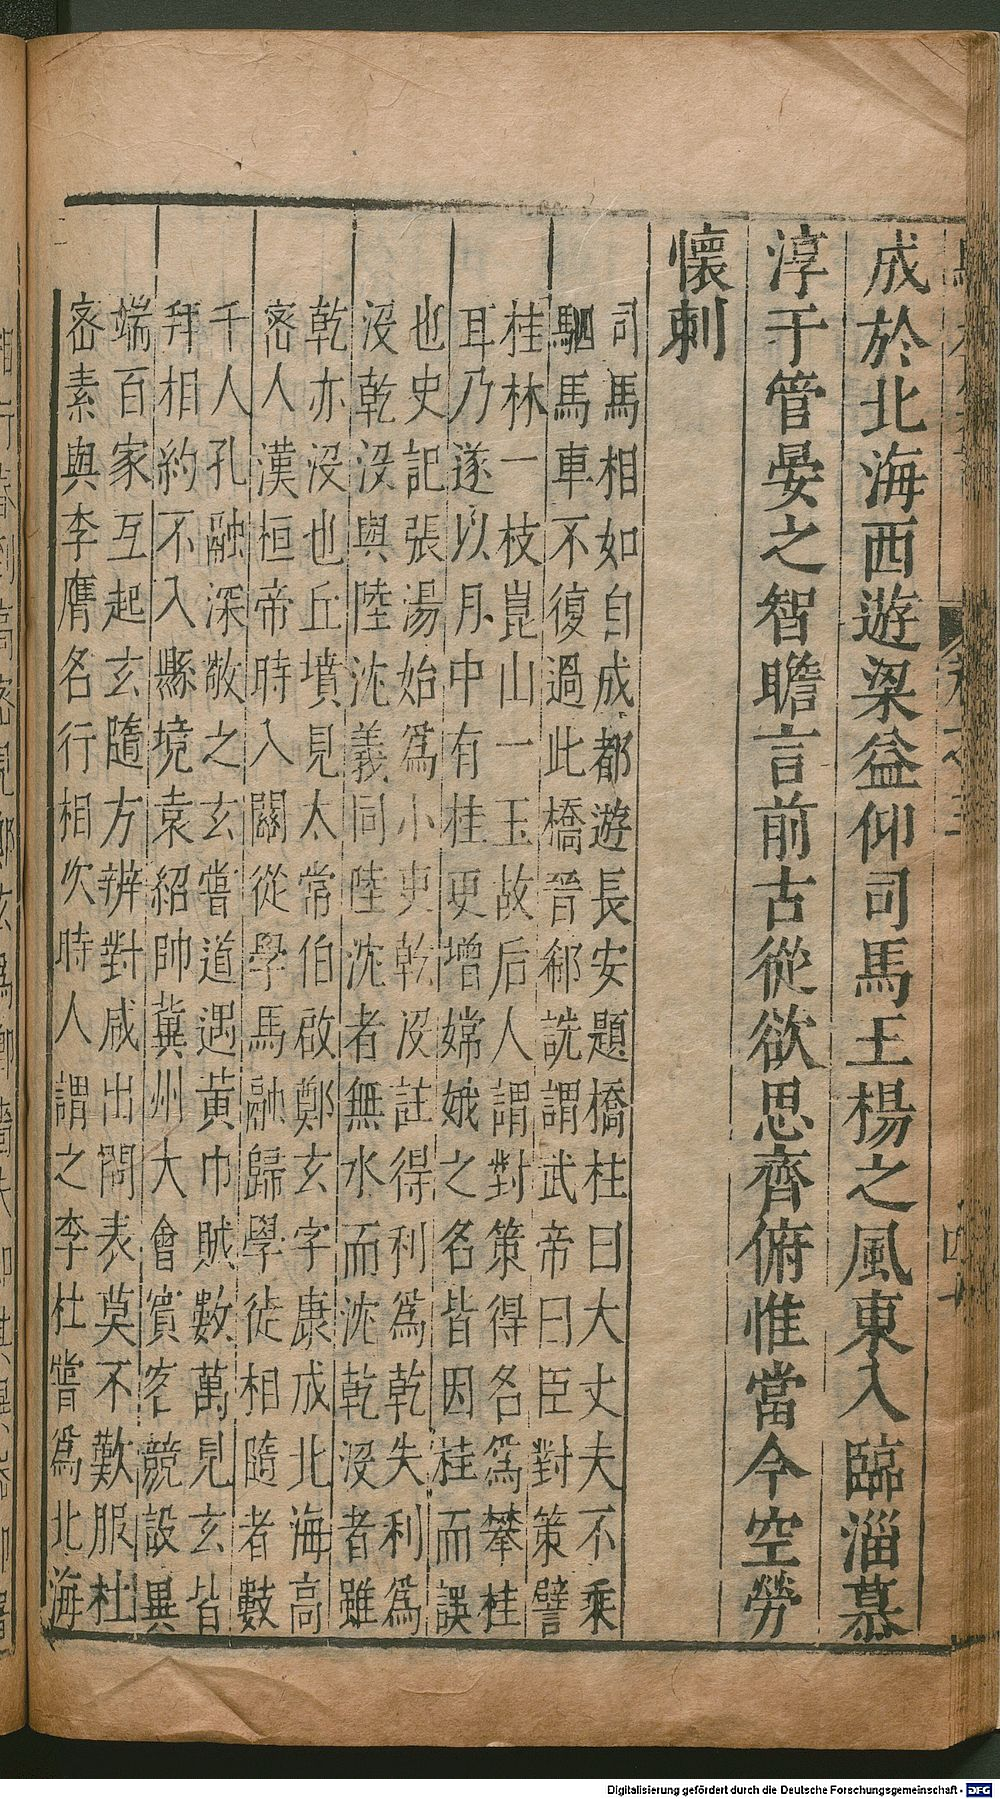 成於北海西遊梁益仰司馬王楊之風東入臨淄慕
淳于管晏之智瞻言前古從欲思齊俯惟當今空勞
懷刺
司馬相如自成都遊長安題橋柱曰大丈夫不乘
駟馬車不復過此橋晉郗詵謂武帝曰臣對策譬
桂林一枝崑山一玉故后人謂對策得名為攀桂
耳乃遂以月中有桂更增嫦娥之名皆因桂而誤
也史記張湯始爲小吏乾沒註得利爲乾失利爲
沒乾沒與陸沈義同陸沈者無水而沈乾沒者雖
乾亦沒也丘墳見太常伯啟鄭玄字康成北海高
宻人漢桓帝時入關從學馬融歸學徒相隨者數
千人孔融深敬之玄嘗道遇黃巾賊數萬見玄皆
拜相約不入縣境袁紹帥冀州大會賓客競設異
端百家互起玄隨方辨對咸出問表莫不歎服杜
宻素與李膺名行相次時人謂之李杜嘗爲北海
Digitalisierung gefördert durch die Deutsche Forschungsgemeinschaft - DFG